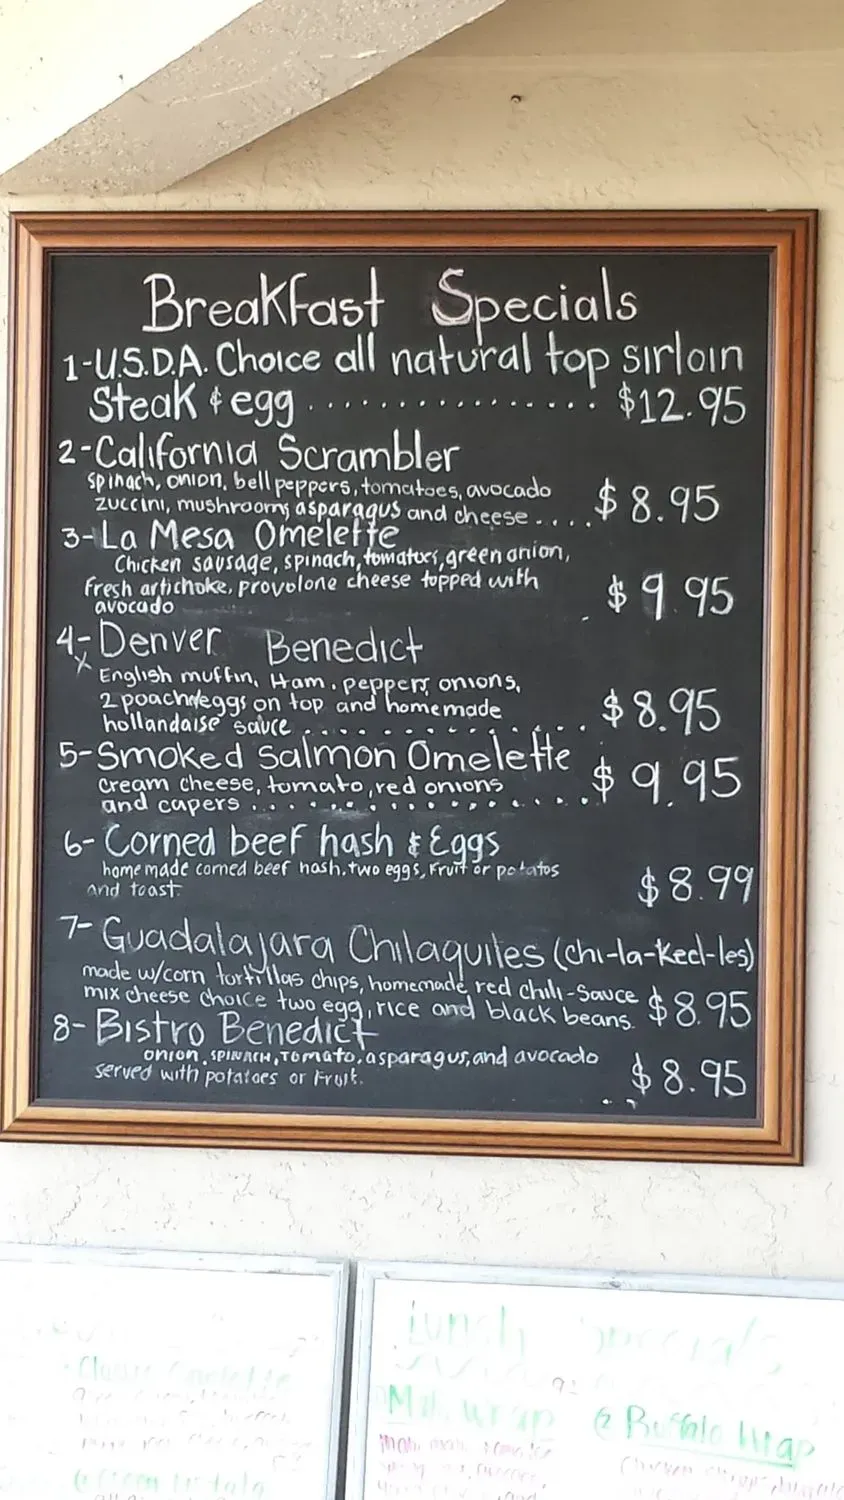 Breakfast Specials
1-U.S.D.A. Choice all natural top sirloin
Steak & egg ................ $12.95
2-California Scrambler
spinach, onion, bell peppers, tomatoes, avocado
zuccini, mushrooms asparagus and cheese.... $8.95
3-La Mesa Omelette
Chicken sausage, spinach, tomatoes, green onion,
Fresh artichoke, provolone cheese topped with
avocado $9.95
4-Denver Benedict
x English muffin, Ham, peppers, onions,
2 poach eggs on top and homemade
hollandaise sauce ............... $8.95
5-Smoked salmon Omelette
cream cheese, tomato, red onions
and capers .................. $9.95
6-Corned beef hash & Eggs
home made corned beef hash, two eggs, Fruit or potatos
and toast. $8.99
7-Guadalajara Chilaquiles (chi-la-Keel-les)
made w/corn tortillas chips, homemade red chili-Sauce
mix cheese choice two egg, rice and black beans. $8.95
8-Bistro Benedict
onion, SPINACH, TOMATO, asparagus, and avocado
served with potatoes or Fruit. $8.95
Lunch Specials
wrap @ Buffalo Wrap